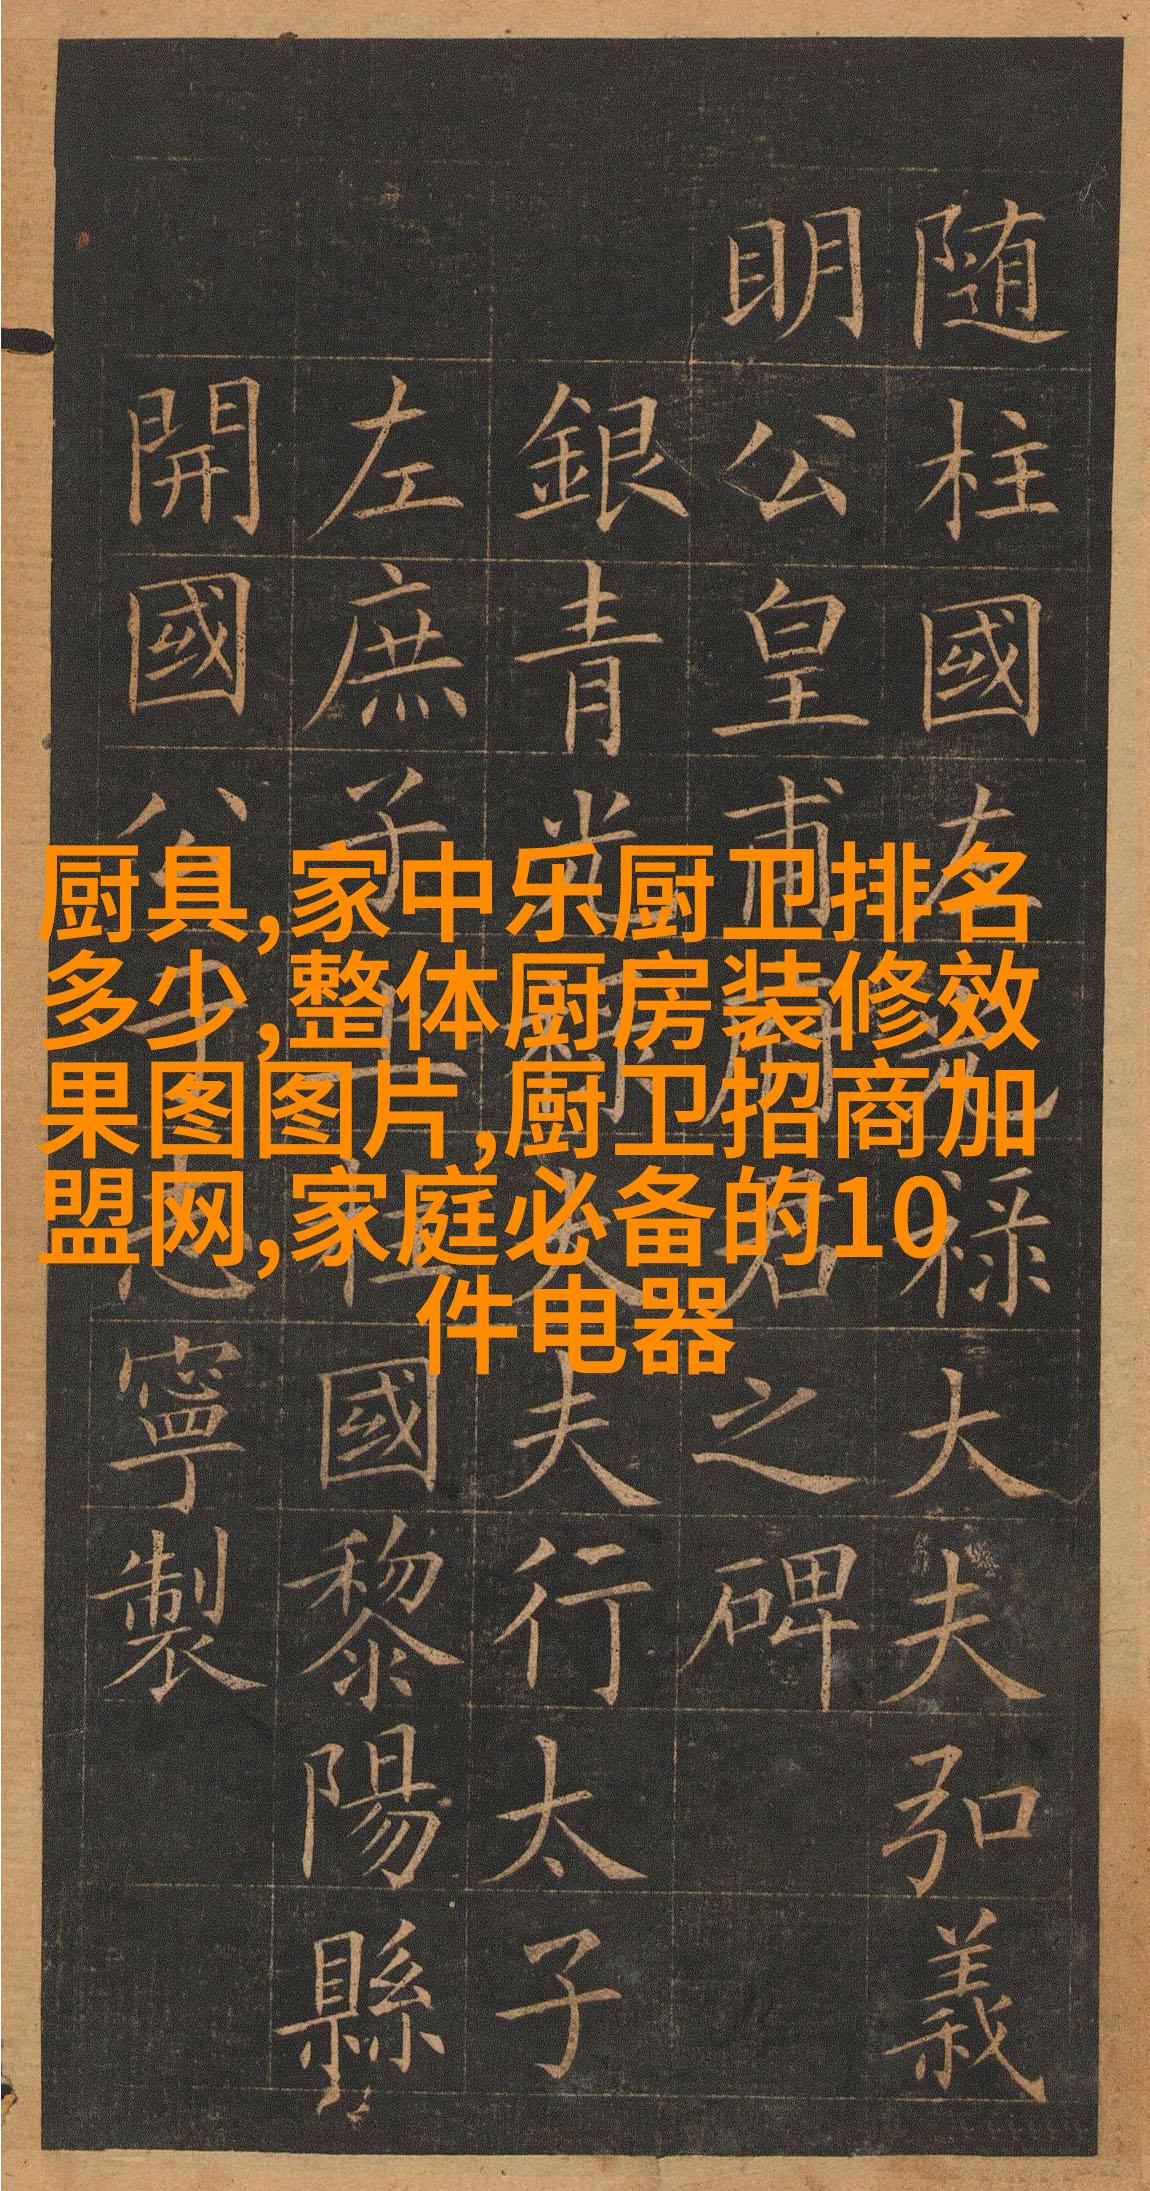 随柱國左光禄大夫弘義
明公皇甫府君之碑
銀青光禄大夫行太子
左庶子上柱國黎陽縣
開國公于志寧製
厨具,家中乐厨卫排名
多少,整体厨房装修效
果图图片,厨卫招商加
盟网,家庭必备的10
件电器